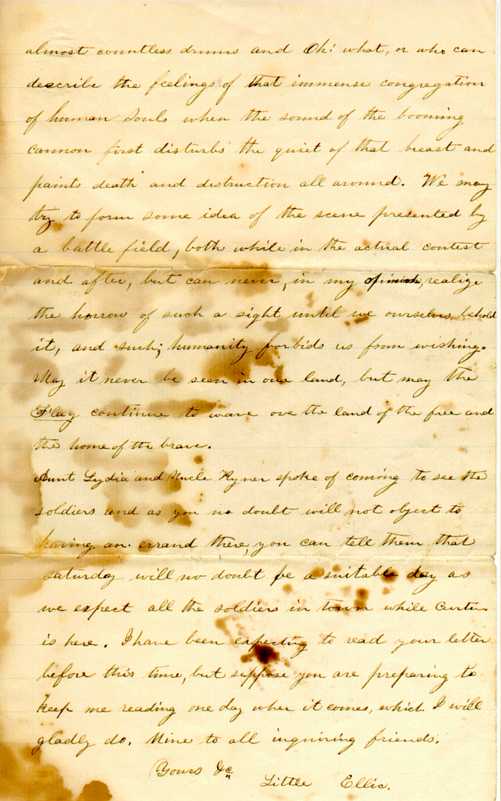 almost countless drums and Oh! what, or who can
describe the feelings of that immense congregation
of human Souls when the sound of the booming
cannon first disturbs the quiet of that heart and
paints death and distruction all around. We may
try to form some idea of the scene presented by
a battle field, both while in the actual contest
and after, but can never, in my opinion, realize
the horrow of such a sight until we ourselves, behold
it, and such, humanity forbids us from wishing.
May it never be seen in our land, but may the
Flag continue to wave ove the land of the free and
the home of the brave.
Aunt Lydia and Uncle Ryner spoke of coming to see the
soldiers and as you no doubt will not object to
having an errand there, you can tell them that
saturday will no doubt be a suitable day as
we expect all the soldiers in town while Curtis
is here. I have been expecting to read your letter
before this time, but suppose you are preparing to
keep me reading one day when it comes, which I will
gladly do. Mine to all inquiring friends.
Yours &c
Little Ellie.